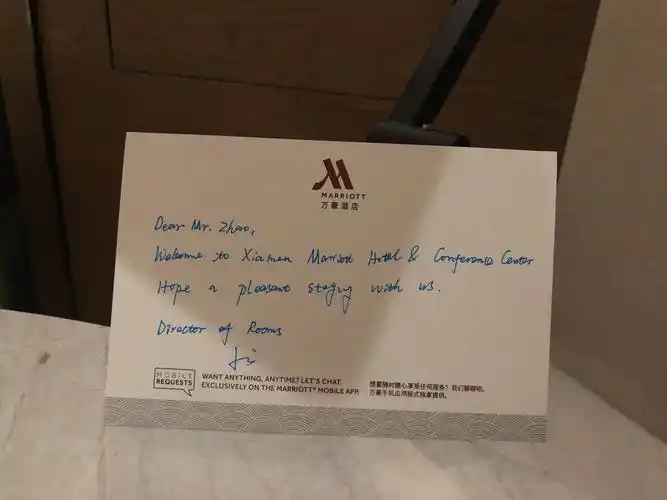 MARRIOTT
万豪酒店
Dear Mr. Zhao,
Welcome to Xiamen Marriott Hotel & Conference Center
Hope a pleasant staying with us.
Director of Rooms
MOBILE
REQUESTS
WANT ANYTHING, ANYTIME? LET'S CHAT.
EXCLUSIVELY ON THE MARRIOTT® MOBILE APP.
想要随时随心享受任何服务？我们聊聊吧。
万豪手机应用程式独家提供。